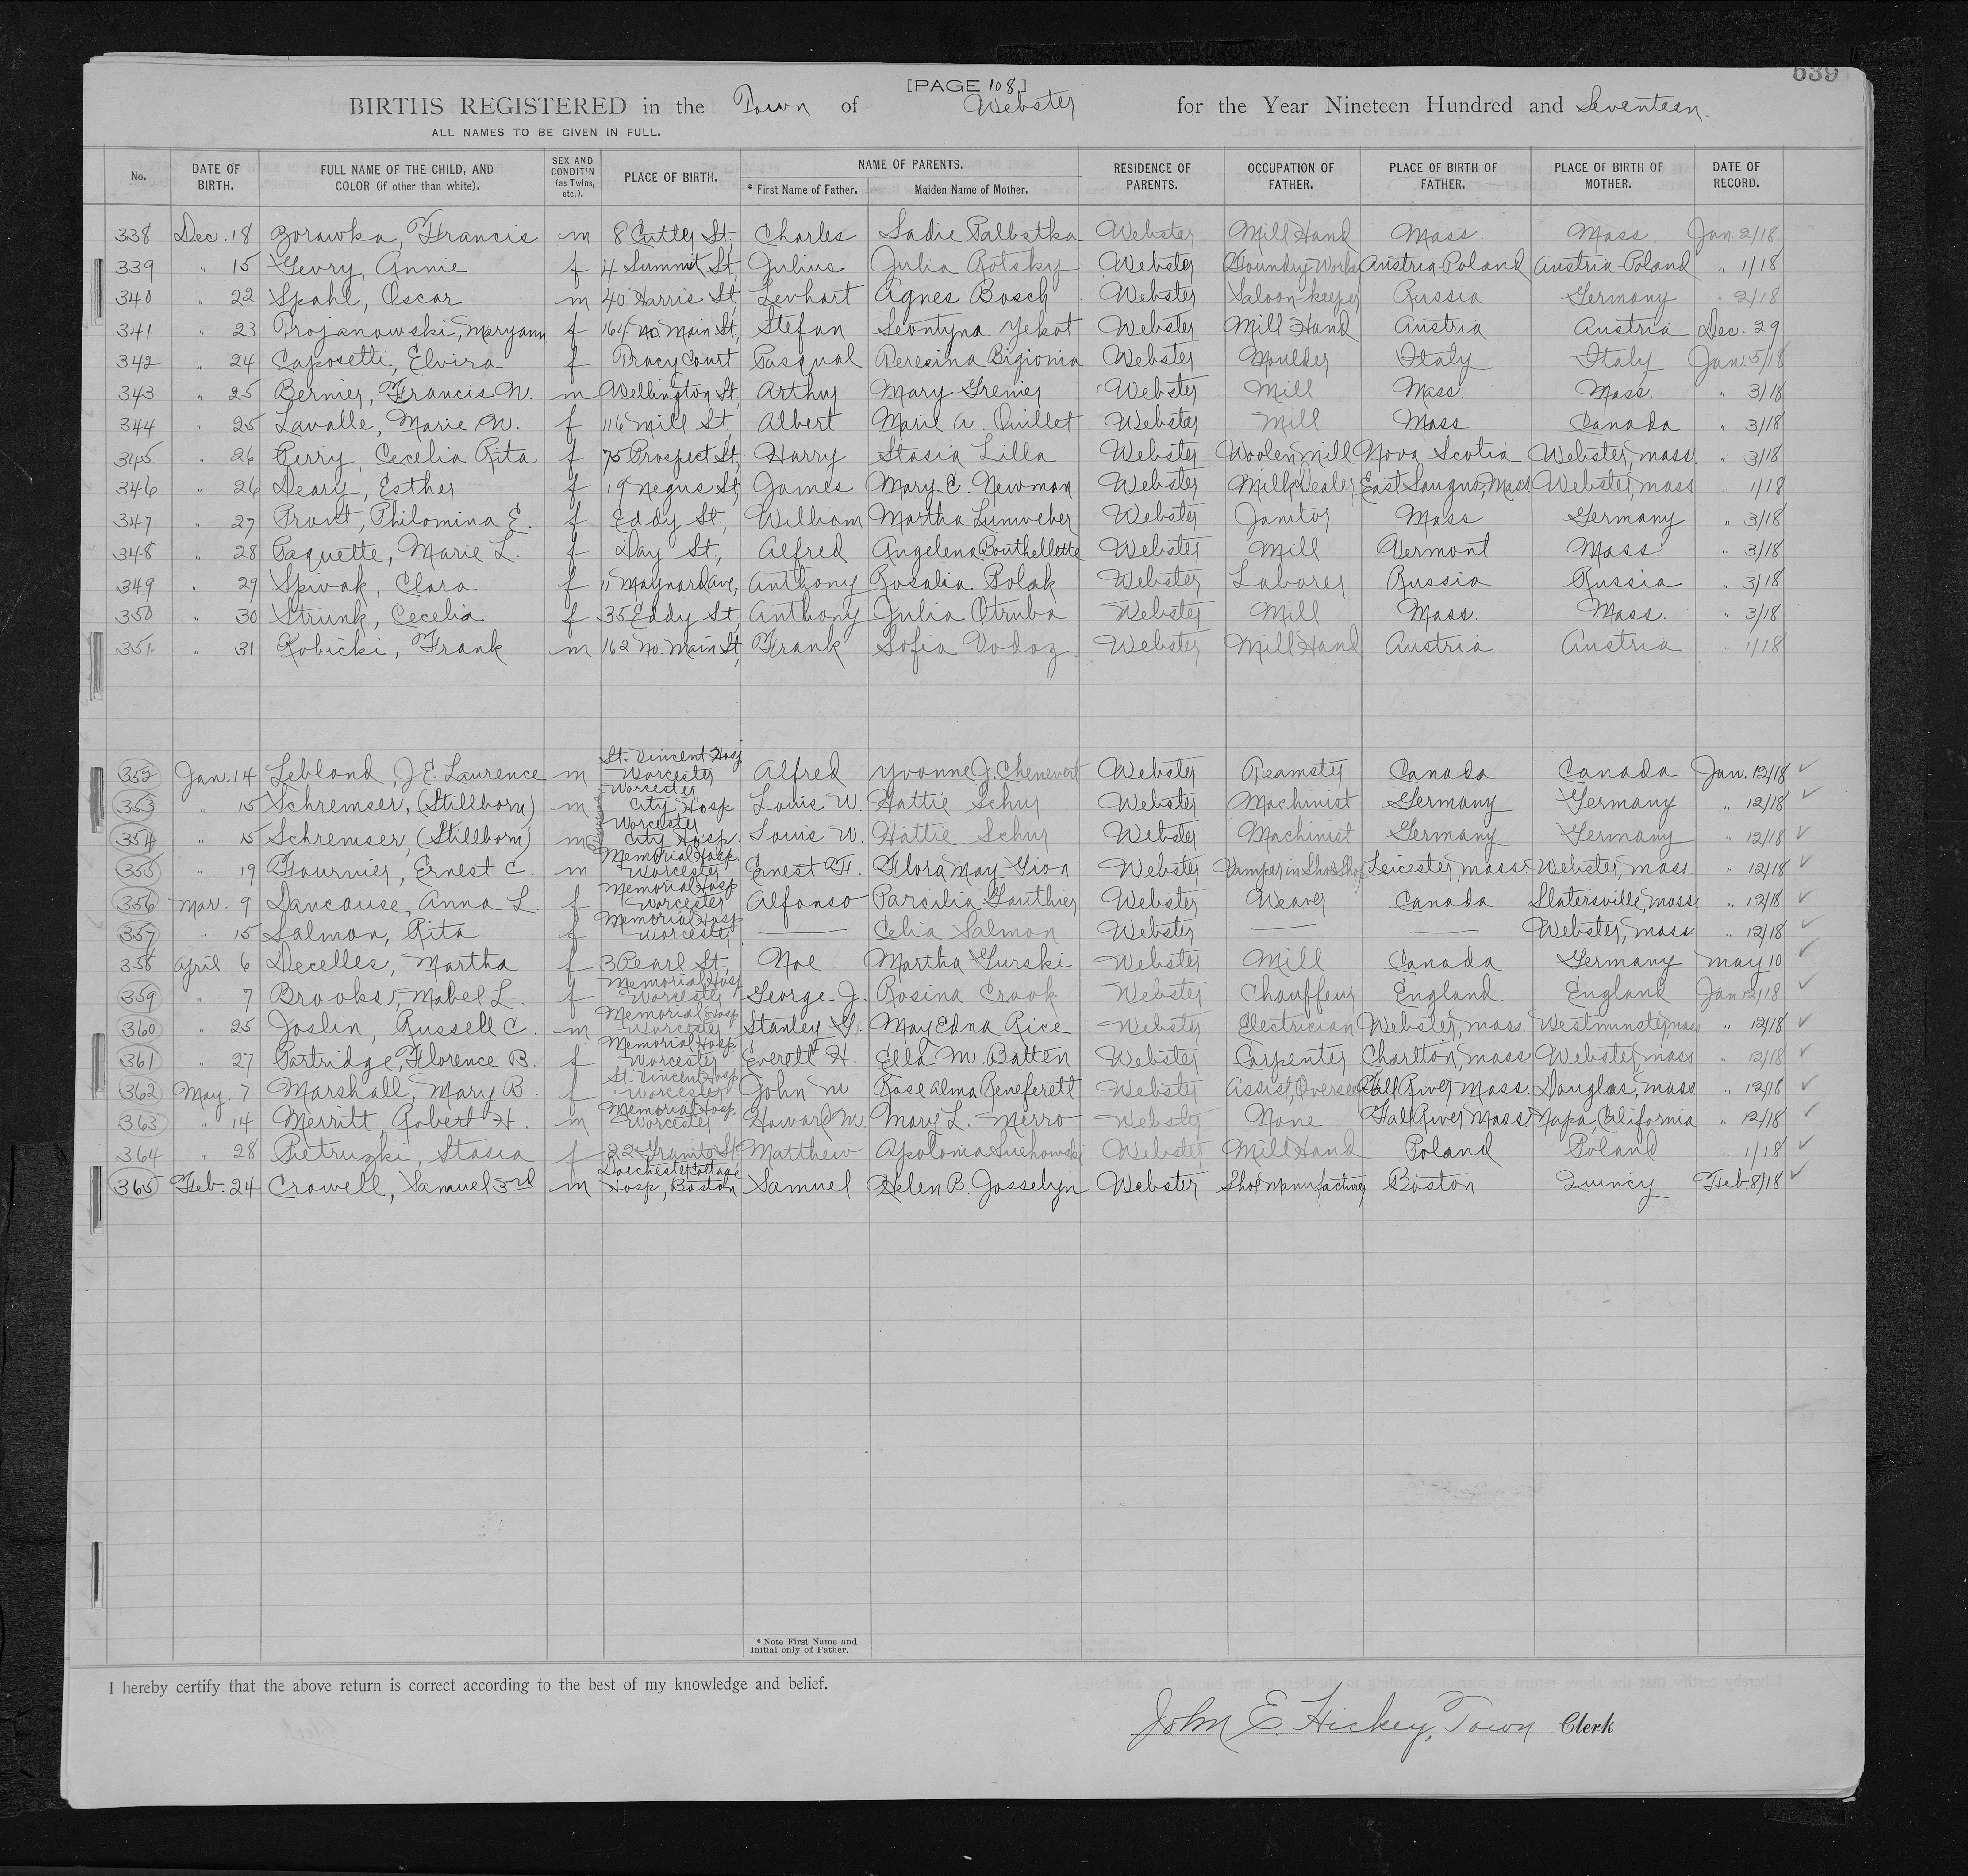 639
[PAGE 108]
BIRTHS REGISTERED in the Town of Webster for the Year Nineteen Hundred and Seventeen.
ALL NAMES TO BE GIVEN IN FULL.
No. DATE OF BIRTH. FULL NAME OF THE CHILD, AND COLOR (if other than white). SEX AND CONDIT'N (as Twins, etc.). PLACE OF BIRTH. NAME OF PARENTS. * First Name of Father. Maiden Name of Mother. RESIDENCE OF PARENTS. OCCUPATION OF FATHER. PLACE OF BIRTH OF FATHER. PLACE OF BIRTH OF MOTHER. DATE OF RECORD.
338 Dec. 18 Zorawka, Francis m 8 Cutler St, Charles Sadie Webster Mill Hand Mass. Mass. Jan. 2/18
339 " 15 Gevry, Annie f 4 Summit St, Julius Julia Rotsky Webster Foundry Works Austria-Poland Austria-Poland " 1/18
340 " 22 Spahl, Oscar m 40 Harris St, Levhart Agnes Bosch Webster Saloon-keeper Russia Germany " 2/18
341 " 23 Trojanowski, Maryann f 164 No. Main St, Stefan Leontyna Yekot Webster Mill Hand Austria Austria Dec. 29
342 " 24 Caposetti, Elvira f Tracy Court Pasqual Teresina Bigionia Webster Moulder Italy Italy Jan. 5/18
343 " 25 Bernier, Francis N. m Wellington St, Arthur Mary Grenier Webster Mill Mass. Mass. " 3/18
344 " 25 Lavalle, Marie M. f 116 Mill St, Albert Marie A. Ouillet Webster Mill Mass Canada " 3/18
345 " 26 Perry, Cecelia Rita f 75 Prospect St, Harry Stasia Lilla Webster Woolen Mill Nova Scotia Webster, Mass. " 3/18
346 " 26 Deary, Esther f 19 Negus St, James Mary E. Newman Webster Milk Dealer East Saugus, Mass Webster, Mass " 1/18
347 " 27 Prout, Philomina E. f Eddy St., William Martha Lumweber Webster Janitor Mass Germany " 3/18
348 " 28 Paquette, Marie L. f Day St., Alfred Angelena Bouthellette Webster Mill Vermont Mass. " 3/18
349 " 29 Spivak, Clara f 11 Maynard Ave, Anthony Rosalia Polak Webster Laborer Russia Russia " 3/18
350 " 30 Strunk, Cecelia f 35 Eddy St, Anthony Julia Otruba Webster Mill Mass. Mass. " 3/18
351 " 31 Robicki, Frank m 162 No. Main St, Frank Sofia Vodoz Webster Mill Hand Austria Austria " 1/18
352 Jan. 14 Leblond, J.E. Laurence m St. Vincent Hosp Worcester Alfred Yvonne J. Chenevert Webster Teamster Canada Canada Jan. 12/18 ✓
353 " 15 Schremser, (Stillborn) m Worcester City Hosp Louis W. Hattie Schur Webster Machinist Germany Germany " 12/18 ✓
354 " 15 Schremser, (Stillborn) m Worcester City Hosp. Louis W. Hattie Schur Webster Machinist Germany Germany " 12/18 ✓
355 " 19 Fournier, Ernest C. m Memorial Hosp. Worcester Ernest F. Flora May Gion Webster Vamper in Shoe Shop Leicester, Mass. Webster, Mass. " 12/18 ✓
356 Mar. 9 Dancause, Anna L. f Memorial Hosp Worcester Alfonso Parcilia Gauthier Webster Weaver Canada Slatersville, Mass " 12/18 ✓
357 " 15 Salmon, Rita f Memorial Hosp Worcester — Celia Salmon Webster — — Webster, Mass " 12/18 ✓
358 April 6 Decelles, Martha f 3 Pearl St. Noe Martha Gurski Webster Mill Canada Germany May 10 ✓
359 " 7 Brooks, Mabel L. f Memorial Hosp Worcester George J. Rosina Crook Webster Chauffeur England England Jan 12/18 ✓
360 " 25 Joslin, Russell C. m Memorial Hosp Worcester Stanley G. May Edna Rice Webster Electrician Webster, Mass. Westminster, Mass " 12/18 ✓
361 " 27 Partridge, Florence B. f Memorial Hosp Worcester Everett H. Ella M. Batten Webster Carpenter Charlton, Mass Webster, Mass " 12/18 ✓
362 May 7 Marshall, Mary B. f St. Vincent Hosp Worcester John M. Rose Alma Reneferett Webster Assist. Overseer Fall River Mass. Douglas, Mass. " 12/18 ✓
363 " 14 Merritt, Robert H. m Memorial Hosp. Worcester Howard M. Mary L. Merro Webster None Fall River Mass. Napa, California " 12/18 ✓
364 " 28 Pietruzki, Stasia f 22 Granite St Matthew Apolonia Suchowski Webster Mill Hand Poland Poland " 1/18 ✓
365 Feb. 24 Crowell, Samuel 3rd m Dorchester Cottage Hosp., Boston Samuel Helen B. Josselyn Webster Shoe Manufacturer Boston Quincy Feb. 8/18 ✓
* Note First Name and
Initial only of Father.
I hereby certify that the above return is correct according to the best of my knowledge and belief.
John E. Hickey, Town Clerk